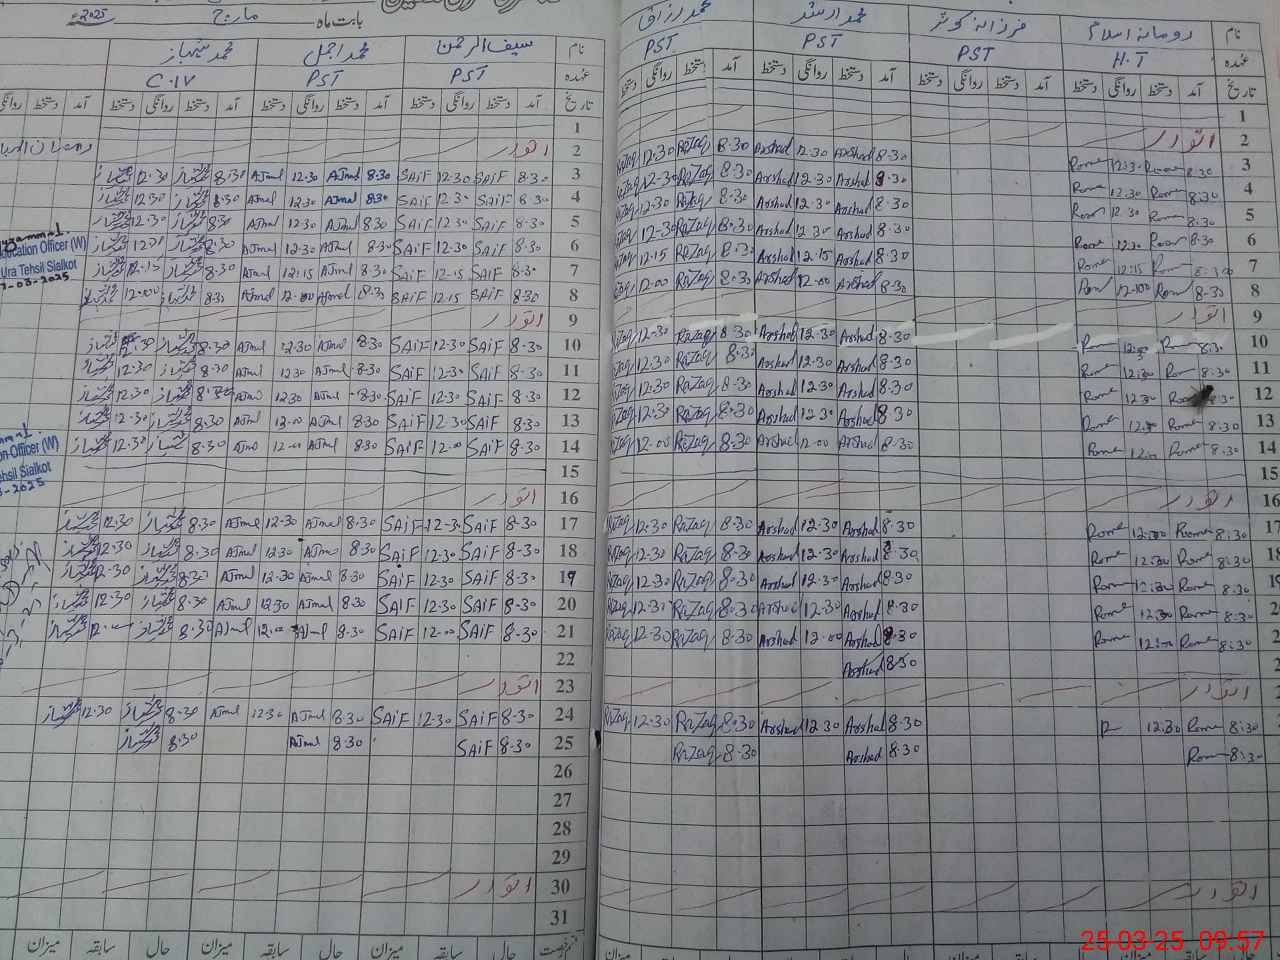 بابت ماہ مارچ 2025
نام رومانہ اسلام فرزانہ کوثر محمد ارشد محمد رزاق
عہدہ H.T PST PST PST
تاریخ آمد دستخط روانگی دستخط آمد دستخط روانگی دستخط آمد دستخط روانگی دستخط آمد دستخط روانگی دستخط
1
2 اتوار
3 8:30 Rome 12:30 Rome 8:30 Arshad 12:30 Arshad 8:30 RaZaq 12:30 RaZaq
4 8:30 Rom 12:30 Rome 8:30 Arshad 12:30 Arshad 8:30 RaZaq 12:30 RaZaq
5 8:30 Rom 12:30 Rom 8:30 Arshad 12:30 Arshad 8:30 RaZaq 12:30 RaZaq
6 8:30 Rom 12:30 Rome 8:30 Arshad 12:30 Arshad 8:30 RaZaq 12:30 RaZaq
7 8:30 Rom 12:15 Rome 8:30 Arshad 12:15 Arshad 8:30 RaZaq 12:15 RaZaq
8 8:30 Rom Rom 8:30 Arshad 12:00 Arshad 8:30 RaZaq 12:00 RaZaq
9 اتوار
10 8:30 Rom 12:30 Rom 8:30 Arshad 12:30 Arshad 8:30 RaZaq 12:30 RaZaq
11 8:30 Rom 12:30 Rom 8:30 Arshad 12:30 Arshad 8:30 RaZaq 12:30 RaZaq
12 8:30 Rom 12:30 Rome 8:30 Arshad 12:30 Arshad 8:30 RaZaq 12:30 RaZaq
13 8:30 Rome Rome 8:30 Arshad 12:30 Arshad 8:30 RaZaq 12:30 RaZaq
14 8:30 Rome Rome 8:30 Arshad 12:00 Arshad 8:30 RaZaq 12:00 RaZaq
15
16 اتوار
17 8:30 Rome Rome 8:30 Arshad 12:30 Arshad 8:30 RaZaq 12:30 RaZaq
18 8:30 Rome Rome 8:30 Arshad 12:30 Arshad 8:30 RaZaq 12:30 RaZaq
8:30 Rome Rome 8:30 Arshad 12:30 Arshad 8:30 RaZaq 12:30 RaZaq
8:30 Rome Rome 8:30 Arshad 12:30 Arshad 8:30 RaZaq RaZaq
8:30 Rome Rome 8:30 Arshad 12:00 Arshad 8:30 RaZaq 12:30 RaZaq
8:30 Arshad
اتوار
8:30 Rome 12:30 R 8:30 Arshad 12:30 Arshad 8:30 RaZaq 12:30 RaZaq
8:30 Rom 8:30 Arshad 8:30 RaZaq
اتوار
نام سیف الرحمن محمد اجمل محمد شہباز
عہدہ PST PST C.IV
تاریخ آمد دستخط روانگی دستخط آمد دستخط روانگی دستخط آمد دستخط روانگی دستخط آمد دستخط روانگی
1
2 اتوار
3 8:30 SAIF 12:30 SAIF 8:30 AJmal 12:30 AJmal 8:30 شہباز 12:30 شہباز
4 8:30 SAIF 12:30 SAIF 8:30 AJmal 12:30 AJmal 8:30 شہباز 12:30 شہباز
5 8:30 SAIF 12:30 SAIF 8:30 AJmal 12:30 AJmal 8:30 شہباز 12:30 شہباز
6 8:30 SAIF 12:30 SAIF 8:30 AJmal 12:30 AJmal 8:30 شہباز شہباز
7 8:30 SAIF 12:15 SAIF 8:30 AJmal 12:15 AJmal 8:30 شہباز 12:15 شہباز
8 8:30 SAIF 12:15 SAIF 8:30 AJmal AJmal 8:30 شہباز 12:00 شہباز
9 اتوار
10 8:30 SAIF 12:30 SAIF 8:30 AJmal 12:30 AJmal 8:30 شہباز 12:30 شہباز
11 8:30 SAIF 12:30 SAIF 8:30 AJmal 12:30 AJmal 8:30 شہباز 12:30 شہباز
12 8:30 SAIF 12:30 SAIF 8:30 AJmal 12:30 AJmal 8:30 شہباز 12:30 شہباز
13 8:30 SAIF 12:30 SAIF 8:30 AJmal 12:00 AJmal 8:30 شہباز 12:30 شہباز
14 8:30 SAIF 12:00 SAIF 8:30 AJmal 12:00 AJmal 8:30 شہباز 12:30 شہباز
15
16 اتوار
17 8:30 SAIF 12:30 SAIF 8:30 AJmal 12:30 AJmal 8:30 شہباز 12:30 شہباز
18 8:30 SAIF 12:30 SAIF 8:30 AJmal 12:30 AJmal 8:30 شہباز 12:30 شہباز
19 8:30 SAIF 12:30 SAIF 8:30 AJmal 12:30 AJmal 8:30 شہباز 12:30 شہباز
20 8:30 SAIF 12:30 SAIF 8:30 AJmal 12:30 AJmal 8:30 شہباز 12:30 شہباز
21 8:30 SAIF 12:00 SAIF 8:30 AJmal 12:00 AJmal 8:30 شہباز 12:00 شہباز
22
23 اتوار
24 8:30 SAIF 12:30 SAIF 8:30 AJmal 12:30 AJmal 8:30 شہباز 12:30 شہباز
25 8:30 SAIF 8:30 AJmal 8:30 شہباز
26
27
28
29
30 اتوار
31
حال سابقہ میزان حال سابقہ میزان حال سابقہ میزان
ucation Officer (W)
Ura Tehsil Sialkot
-03-2025
on Officer (W)
ehsil Sialkot
-2025
25-03-25 09:57